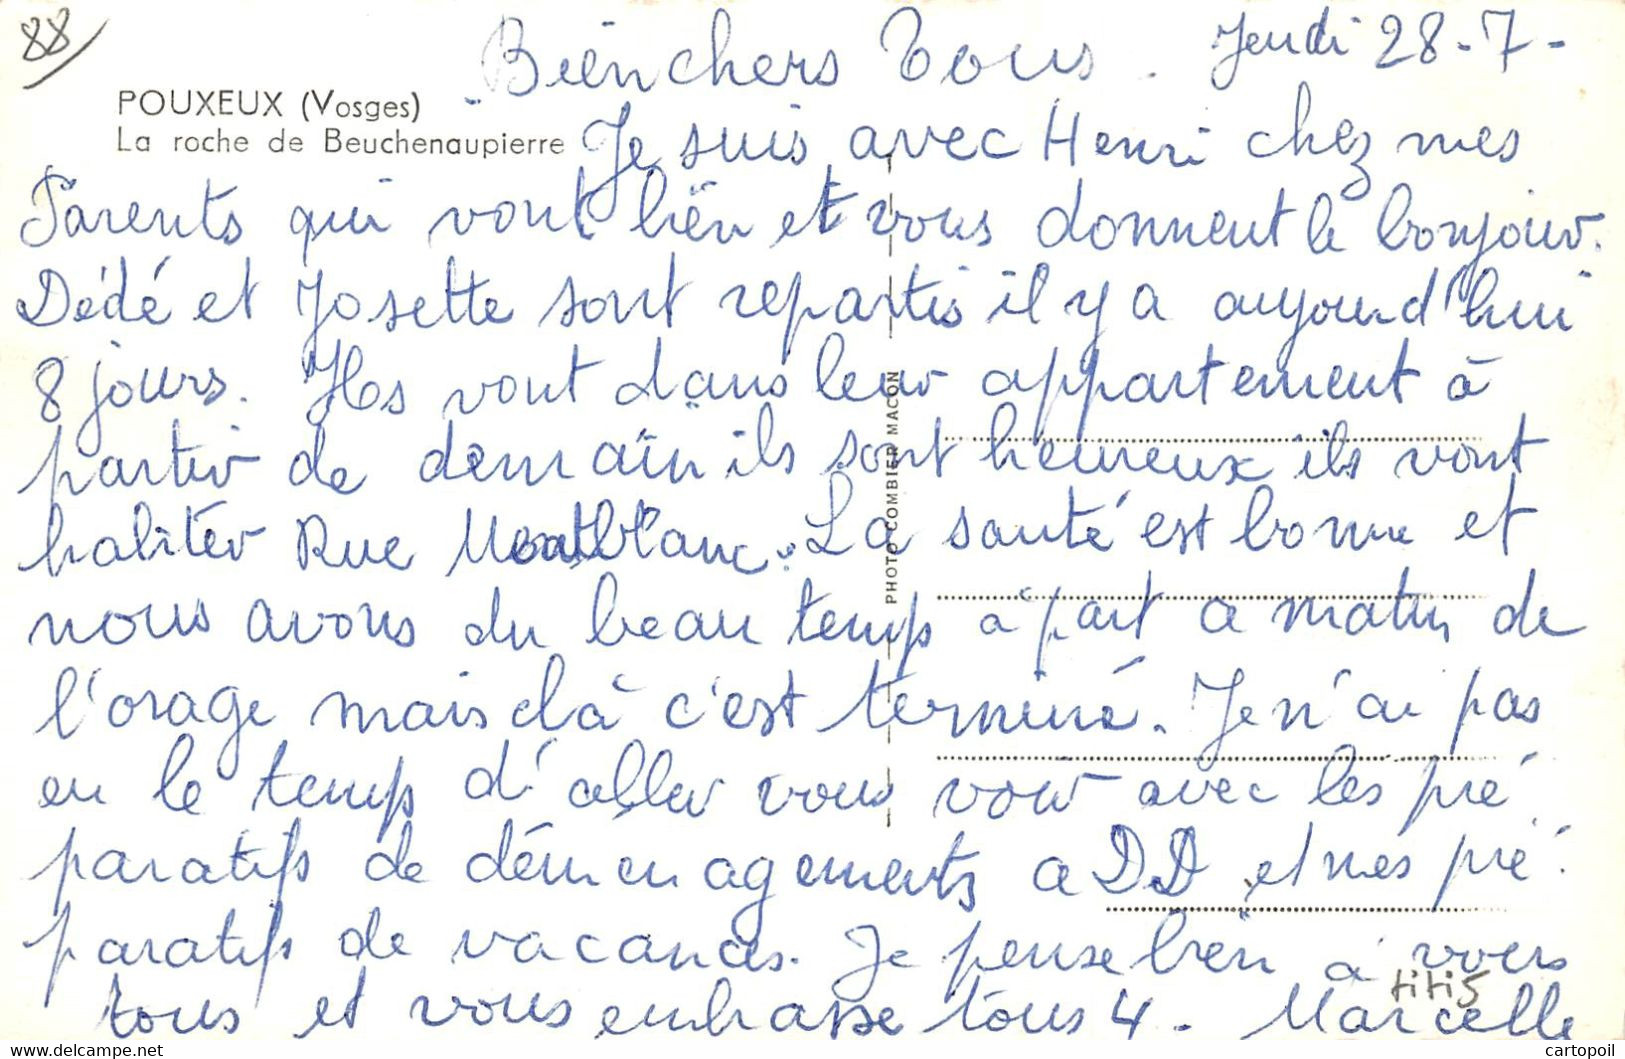 88
Jeudi 28-7-
Bien chers Tous.
POUXEUX (Vosges)
La roche de Beuchenaupierre
Je suis avec Henri chez mes
Parents qui vont bien et vous donnent le bonjour.
Dédé et Josette sont repartis il y a aujourd'hui
8 jours. Ils vont dans leur appartement à
partir de demain ils sont heureux ils vont
habiter Rue Montblanc. La santé est bonne et
nous avons du beau temps à part ce matin de
l'orage mais là c'est terminé. Je n'ai pas
eu le temps d'aller vous voir avec les pré
paratifs de déménagements a DD et mes pré
paratifs de vacances. Je pense bien à vous
tous et vous embrasse tous 4. Marcelle
titi5
PHOTO COMBIER MACON
www.delcampe.net
cartopoil